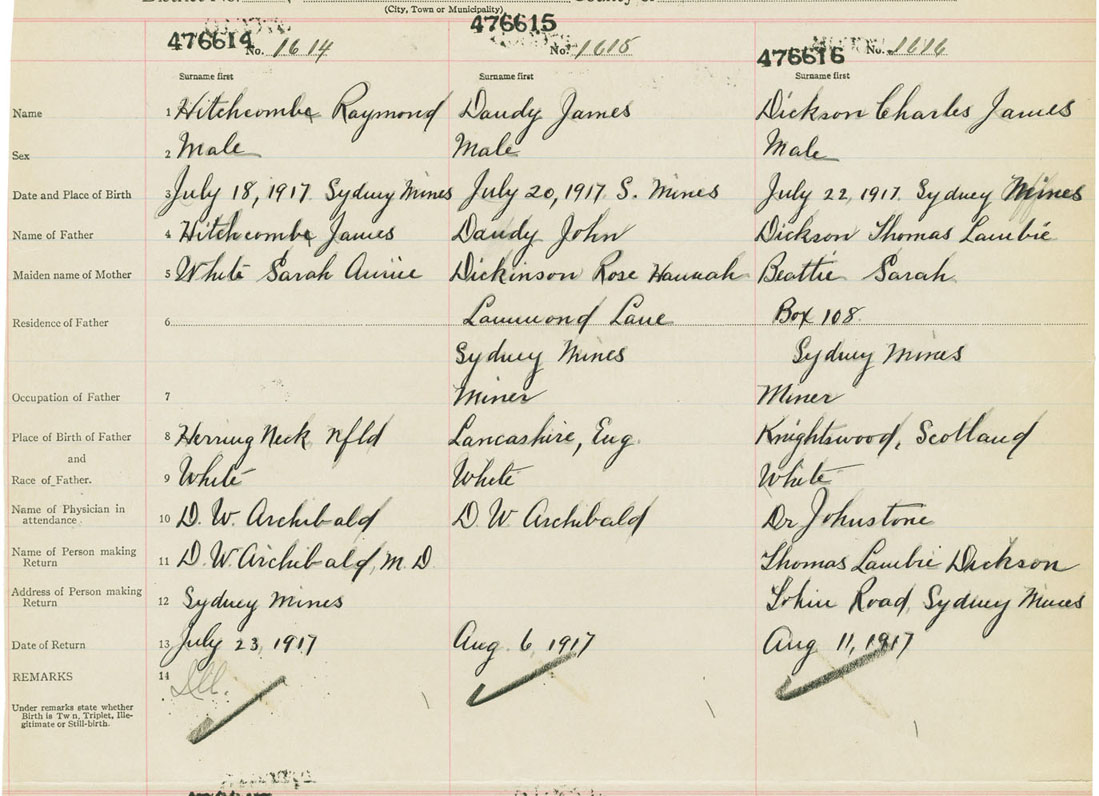 (City, Town or Municipality)
476614 No. 1614 476615 No. 1615 476616 No. 1616
Surname first Surname first Surname first
Name 1 Hitchcombe Raymond Dandy James Dickson Charles James
Sex 2 Male Male Male
Date and Place of Birth 3 July 18, 1917. Sydney Mines July 20, 1917. S. Mines July 22, 1917. Sydney Mines
Name of Father 4 Hitchcombe James Dandy John Dickson Thomas Lambie
Maiden name of Mother 5 White Sarah Annie Dickinson Rose Hannah Beattie Sarah
Residence of Father 6 Lammond Lane Box 108
Sydney Mines Sydney Mines
Occupation of Father 7 Miner Miner
Place of Birth of Father 8 Herring Neck Nfld Lancashire, Eng. Knightswood, Scotland
and
Race of Father. 9 White White White
Name of Physician in
attendance 10 D. W. Archibald D. W. Archibald Dr Johnstone
Name of Person making
Return 11 D. W. Archibald, M. D. Thomas Lambie Dickson
Address of Person making
Return 12 Sydney Mines Road, Sydney Mines
Date of Return 13 July 23, 1917 Aug. 6, 1917 Aug 11, 1917
REMARKS 14 Ill.
Under remarks state whether
Birth is Tw n, Triplet, Ille-
gitimate or Still-birth.